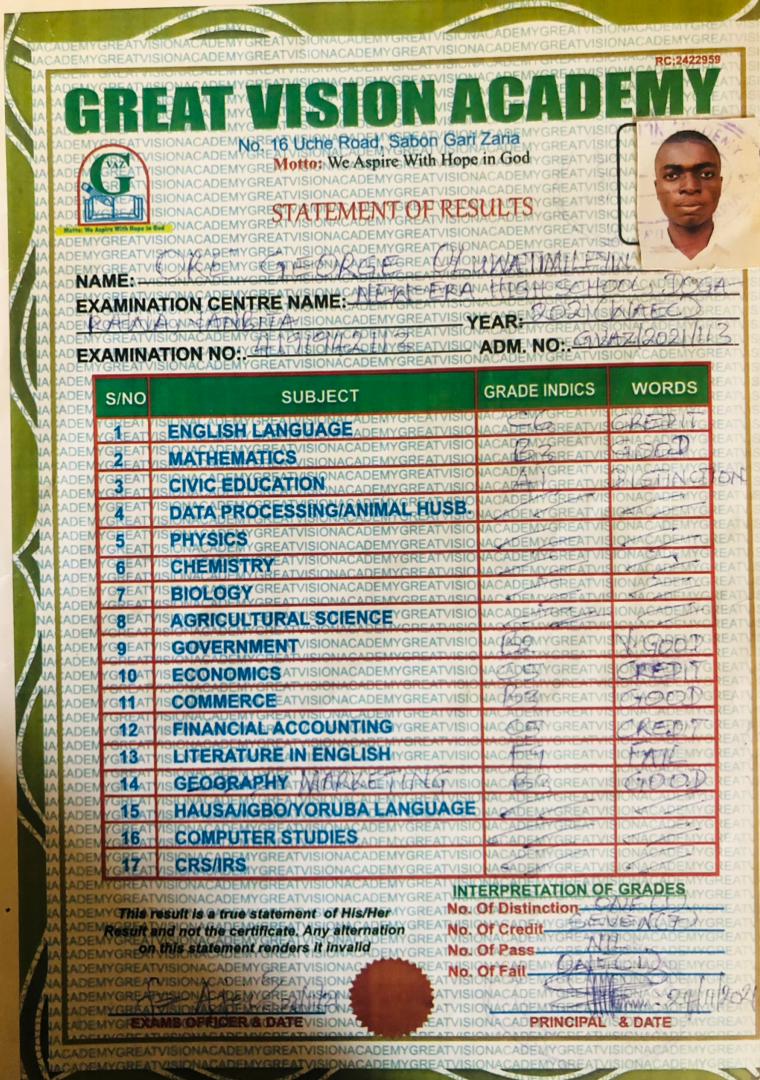 RC;2422959
GREAT VISION ACADEMY
No. 16 Uche Road, Sabon Gari Zaria
Motto: We Aspire With Hope in God
GVAZ
Motto: We Aspire With Hope in God
STATEMENT OF RESULTS
NAME: ORE GEORGE OLUWATIMILEYIN
EXAMINATION CENTRE NAME: NEW ERA HIGH SCHOOL, DOGA
YEAR: 2021 (WAEC)
EXAMINATION NO:. ADM. NO:. GVAZ/2021/113
S/NO SUBJECT GRADE INDICS WORDS
1 ENGLISH LANGUAGE C6 CREDIT
2 MATHEMATICS B3 GOOD
3 CIVIC EDUCATION A1 DISTINCTION
4 DATA PROCESSING/ANIMAL HUSB.
5 PHYSICS
6 CHEMISTRY
7 BIOLOGY
8 AGRICULTURAL SCIENCE
9 GOVERNMENT B2 V.GOOD
10 ECONOMICS C5 CREDIT
11 COMMERCE B3 GOOD
12 FINANCIAL ACCOUNTING C5 CREDIT
13 LITERATURE IN ENGLISH FAIL
14 GEOGRAPHY MARKETING B3 GOOD
15 HAUSA/IGBO/YORUBA LANGUAGE
16 COMPUTER STUDIES
17 CRS/IRS
INTERPRETATION OF GRADES
This result is a true statement of His/Her
Result and not the certificate. Any alternation
on this statement renders it invalid
No. Of Distinction ONE(1)
No. Of Credit SEVEN(7)
No. Of Pass NIL
No. Of Fail ONE(1)
29/11/2021
EXAMS OFFICER & DATE PRINCIPAL & DATE